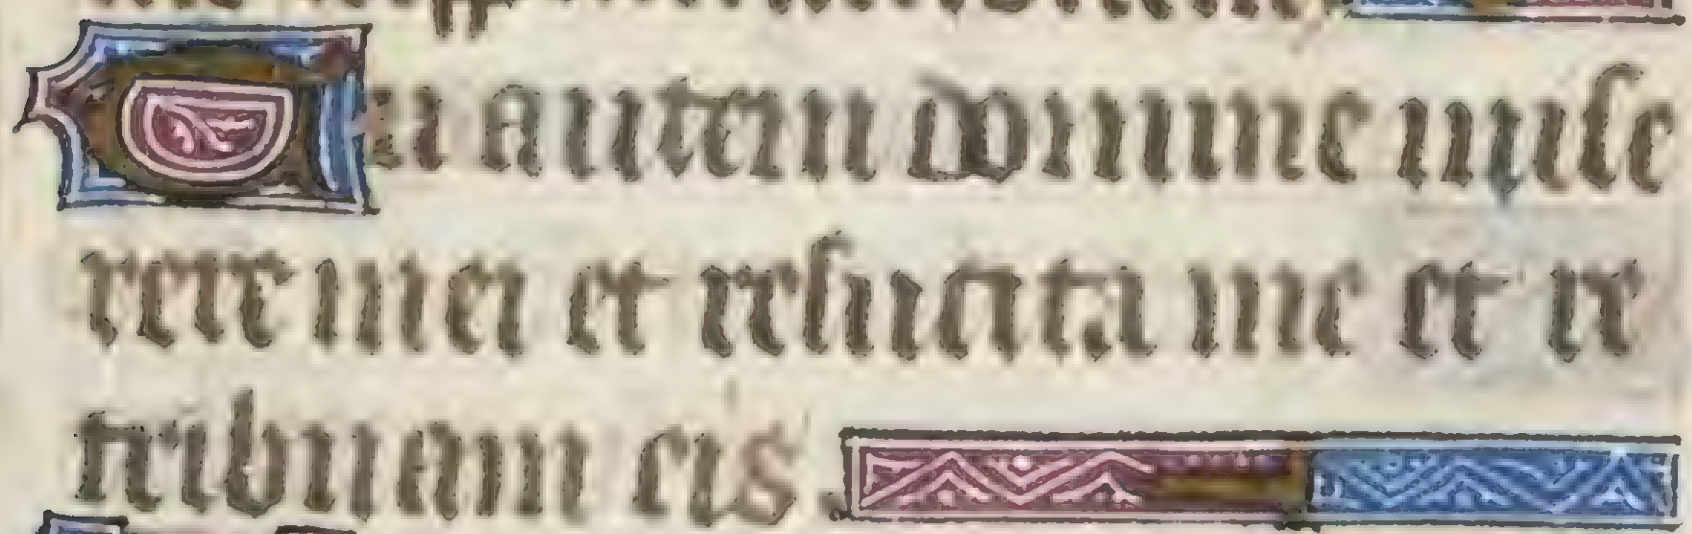 Tu autem domine mise
rere mei et resuscita me et re
tribuam eis.